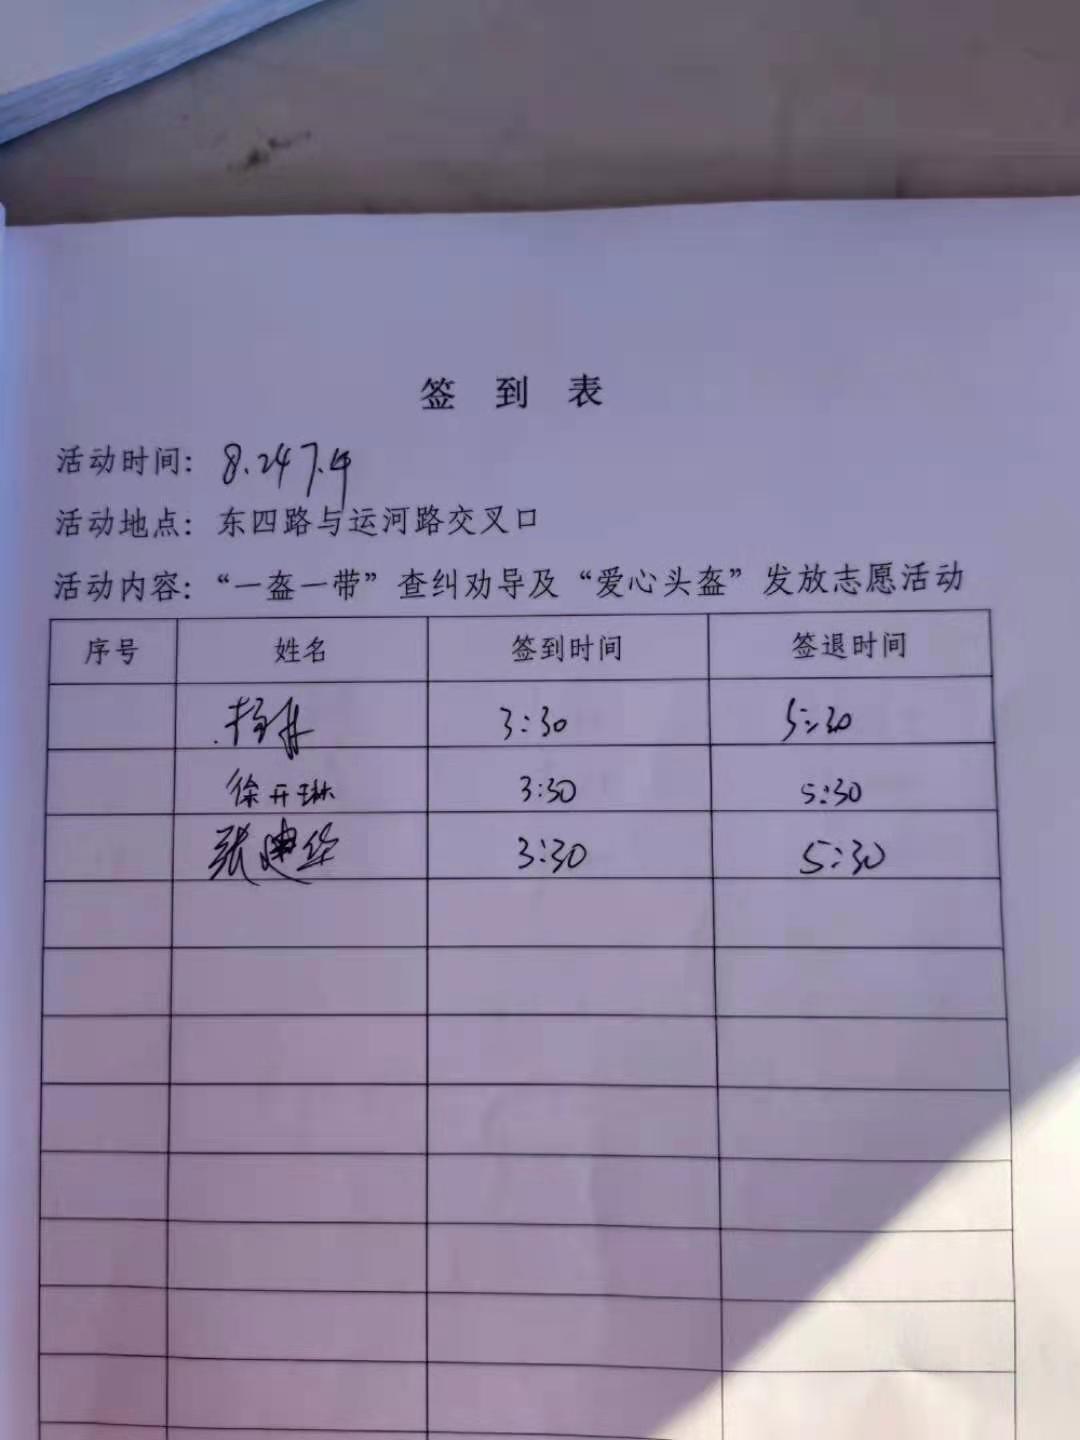 签到表
活动时间: 8.24 下午
活动地点: 东四路与运河路交叉口
活动内容: “一盔一带”查纠劝导及“爱心头盔”发放志愿活动
序号 姓名 签到时间 签退时间
3:30 5:30
徐开琳 3:30 5:30
张建华 3:30 5:30